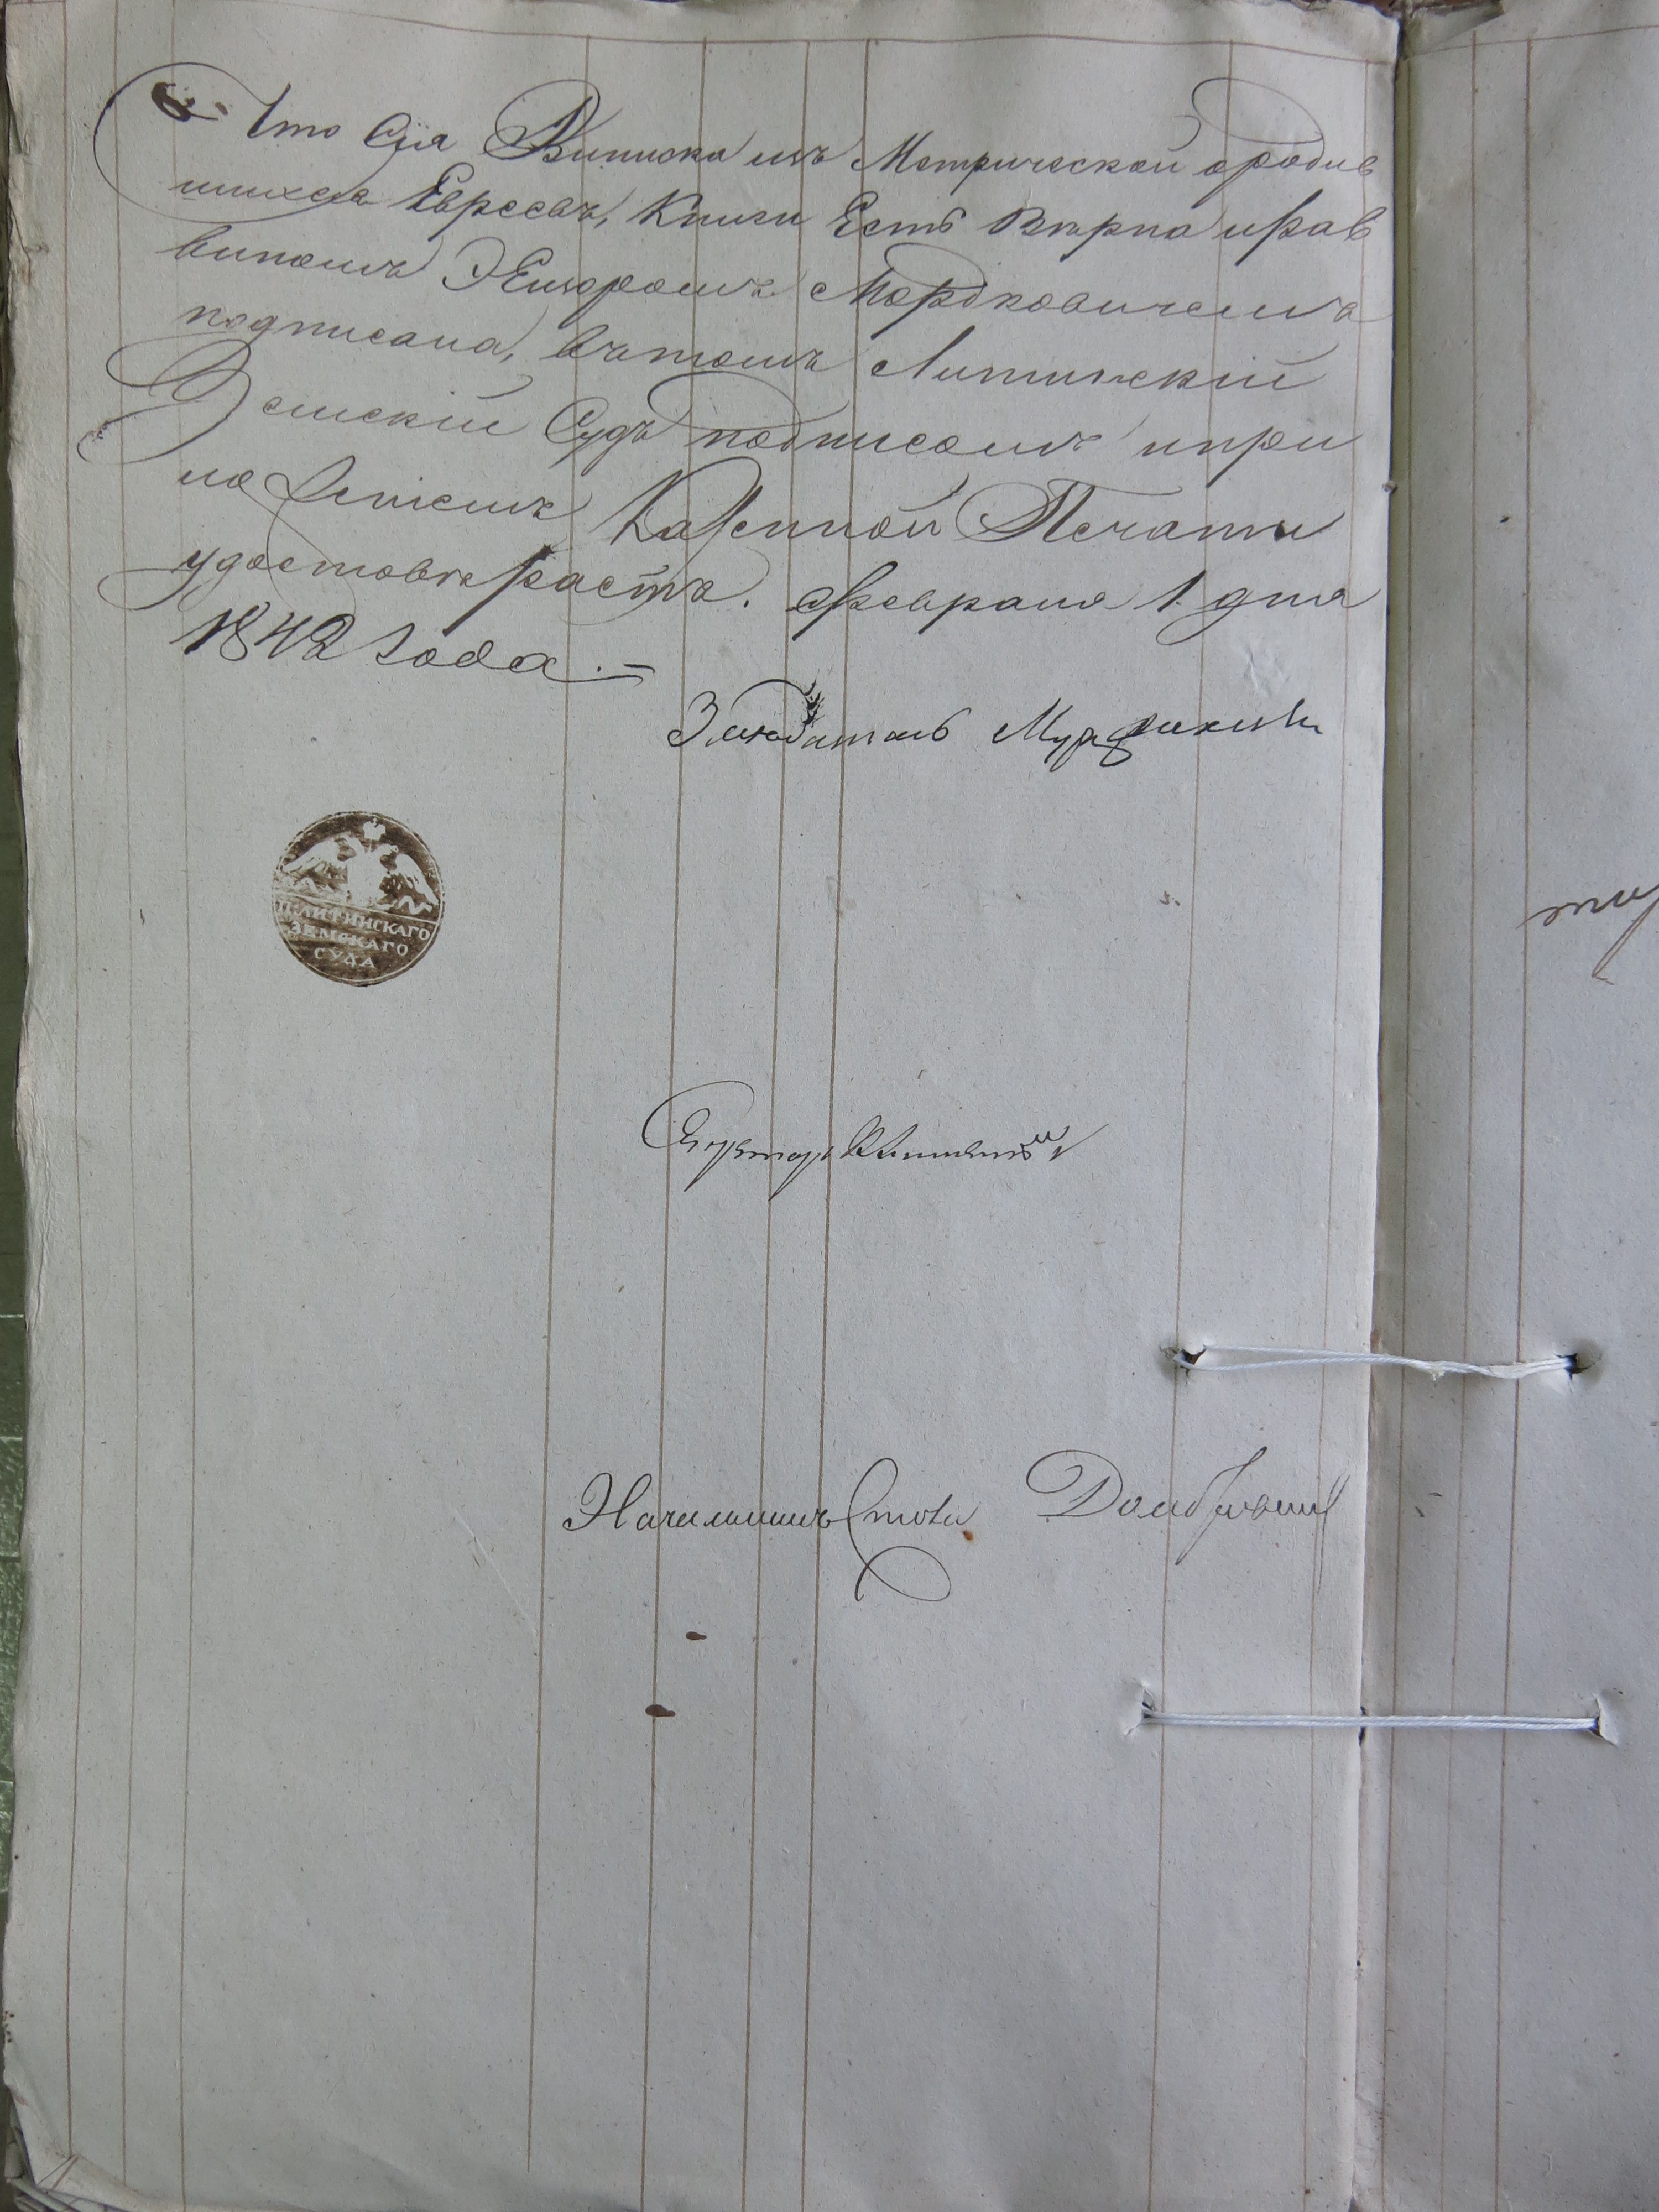 Что Сія Выписка изъ Метрической о родив
шихся Евреевъ, Книги Есть Вѣрна и рав
виномъ Мордковичемъ
подписана, въ томъ Литинскій
Земскій Судъ подписомъ и при
ложеніемъ Казенной Печати
удостовѣряетъ. Февраля 1 дня
1842 года.
Засѣдатель
ЛИТИНСКАГО
ЗЕМСКАГО
СУДА
Секретарь
Начальникъ Стола Домбровский